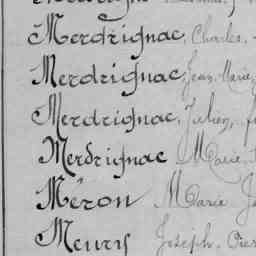 Merdrignac, Charles,
Merdrignac, Jean Marie
Merdrignac, Julien,
Merdrignac Marie
Méron Marie
Meury Joseph